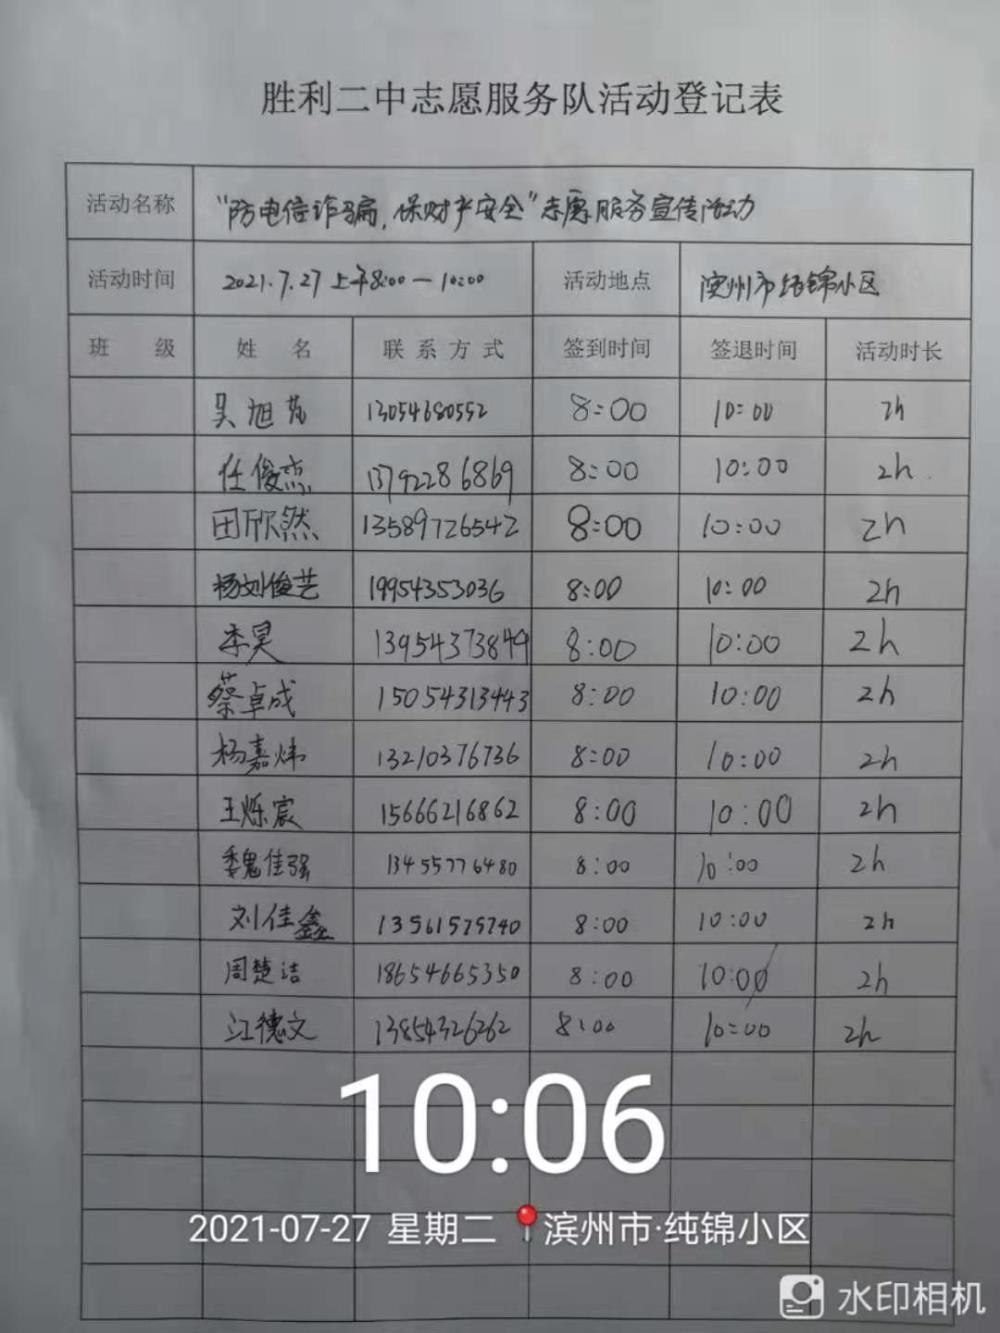 胜利二中志愿服务队活动登记表
活动名称 "防电信诈骗,保财产安全"志愿服务宣传活动
活动时间 2021.7.27 上午8:00—10:00 活动地点 滨州市纯锦小区
班 级 姓 名 联系方式 签到时间 签退时间 活动时长
吴旭 13054680552 8:00 10:00 2h
任俊杰 13792286869 8:00 10:00 2h
田欣然 13589726542 8:00 10:00 2h
杨刘俊艺 19954353036 8:00 10:00 2h
李昊 13954373849 8:00 10:00 2h
蔡卓成 15054313443 8:00 10:00 2h
杨嘉炜 13210376736 8:00 10:00 2h
王烁宸 15666216862 8:00 10:00 2h
魏佳强 13455776480 8:00 10:00 2h
刘佳鑫 13561575740 8:00 10:00 2h
周楚洁 18654665350 8:00 10:00 2h
江德文 13854326262 8:00 10:00 2h
10:06
2021-07-27 星期二 滨州市·纯锦小区
水印相机